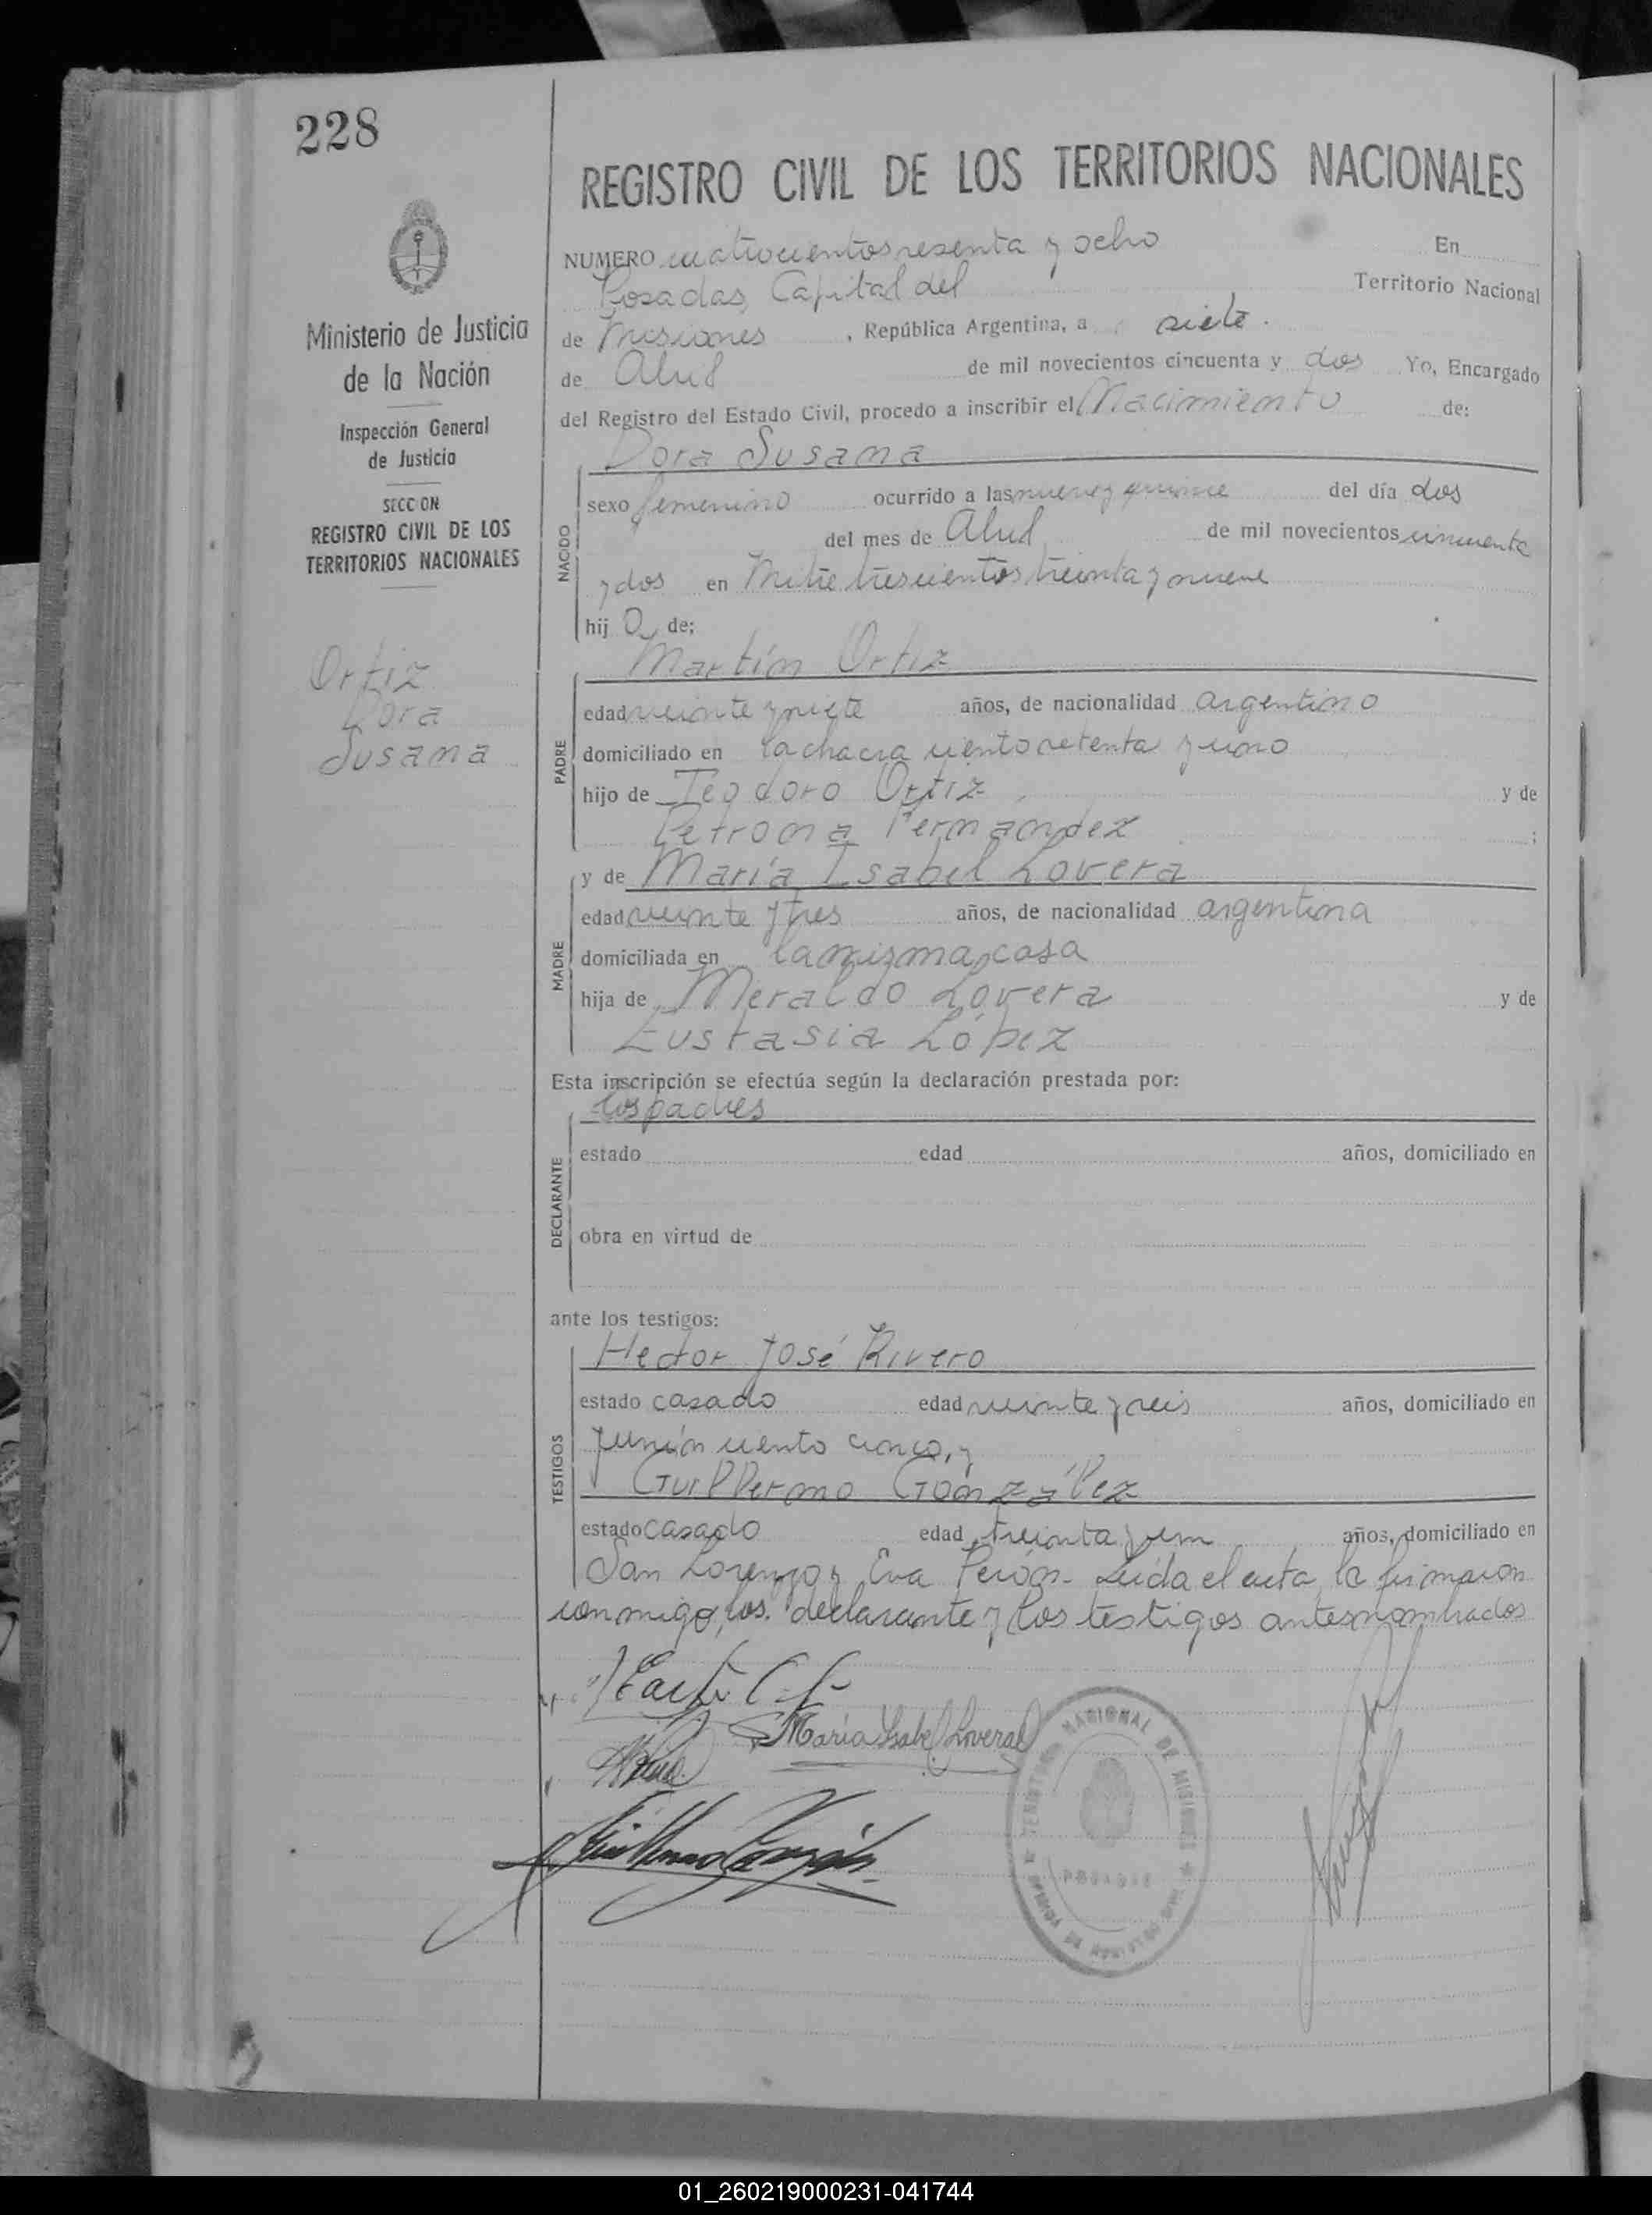 228
REGISTRO CIVIL DE LOS TERRITORIOS NACIONALES
Ministerio de Justicia
de la Nación
Inspección General
de Justicia
SECCION
REGISTRO CIVIL DE LOS
TERRITORIOS NACIONALES
Ortiz
Dora
Susana
NUMERO cuatrocientos sesenta y ocho En
Posadas, Capital del Territorio Nacional
de Misiones, República Argentina, a siete.
de Abril de mil novecientos cincuenta y dos Yo, Encargado
del Registro del Estado Civil, procedo a inscribir el Nacimiento de:
Dora Susana
NACIDO
sexo femenino ocurrido a las nueve y quince del día dos
del mes de Abril de mil novecientos cincuenta
y dos en Mitre trescientos treinta y nueve
hij a de:
Martín Ortiz
PADRE
edad veinte y siete años, de nacionalidad argentino
domiciliado en la chacra ciento setenta y uno
hijo de Teodoro Ortiz y de
Petrona Fernández ;
y de María Isabel Lovera
MADRE
edad veinte y tres años, de nacionalidad argentina
domiciliada en la misma casa
hija de Meraldo Lovera y de
Eustasia López
Esta inscripción se efectúa según la declaración prestada por:
los padres
DECLARANTE
estado edad años, domiciliado en
obra en virtud de
ante los testigos:
Hector José Rivero
TESTIGOS
estado casado edad veinte y seis años, domiciliado en
Junín ciento cinco, y
Guillermo González
estado casado edad treinta y un años, domiciliado en
San Lorenzo y Eva Perón. Leída el acta, la firmaron
conmigo, los declarante y los testigos antes nombrados
María Isabel Lovera
Guillermo González
TERRITORIO NACIONAL DE MISIONES
POSADAS
01_260219000231-041744